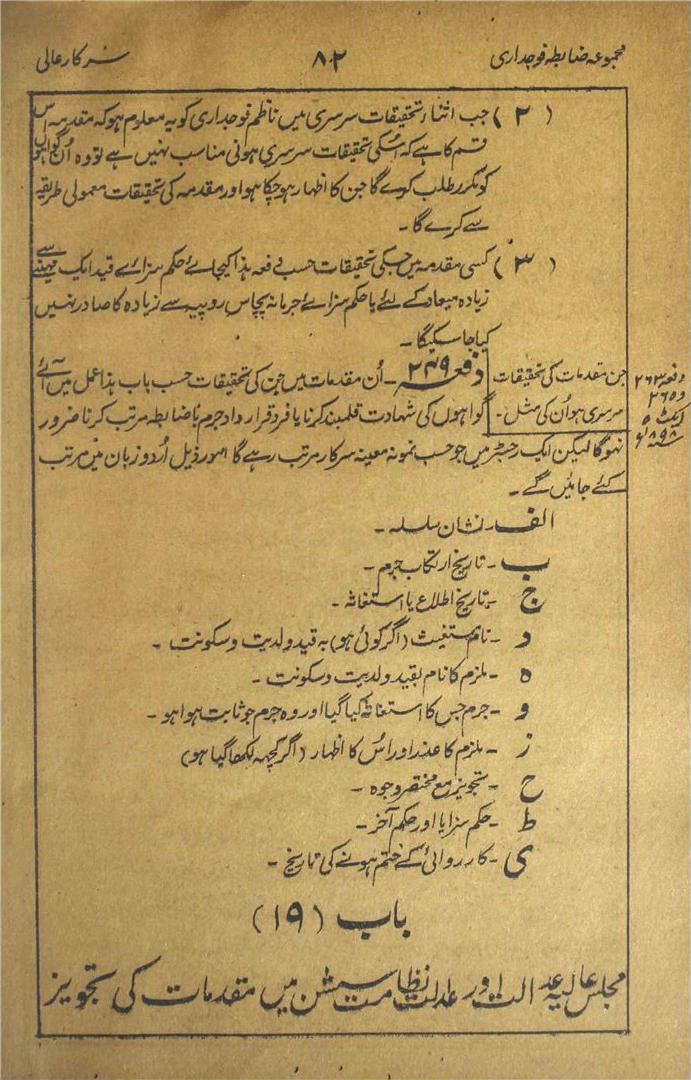 مجموعہ ضابطہ فوجداری
۸۰۲
سرکار عالی
(۲) جب اثناء تحقیقات سرسری میں ناظم فوجداری کو یہ معلوم ہو کہ مقدمہ اس
قسم کا ہے کہ اُسکی تحقیقات سرسری ہونی مناسب نہیں ہے تو وہ اُن گواہوں
کو مکرر طلب کرے گا جن کا اظہار ہو چکا ہو اور مقدمہ کی تحقیقات معمولی طریقہ
سے کرے گا ۔
(۳) کسی مقدمہ میں جسکی تحقیقات حسب دفعہ ہذا کیجائے حکم سزائے قید ایک مہینے سے
زیادہ میعاد کے لئے یا حکم سزائے جرمانہ پچاس روپیہ سے زیادہ کا صادر نہیں
کیا جا سکیگا ۔
جن مقدمات کی تحقیقات
سرسری ہو اُن کی مثل ۔
دفعہ ۲۶۳
و ۲۶۵
ایکٹ ۵
سنہ ۱۸۹۸ء
دفعہ ۲۴۹ ۔ اُن مقدمات میں جن کی تحقیقات حسب باب ہذا عمل میں آئے
گواہوں کی شہادت قلمبند کرنا یا فرد قرارداد جرم باضابطہ مرتب کرنا ضرور
نہوگا لیکن ایک رجسٹر میں جو حسب نمونہ معینہ سرکار مرتب رہے گا امور ذیل اُردو زبان میں مرتب
کئے جائیں گے ۔
الف ۔ نشان سلسلہ ۔
ب ۔ تاریخ ارتکاب جرم ۔
ج ۔ تاریخ اطلاع یا استغاثہ ۔
د ۔ نام مستغیث (اگر کوئی ہو) بہ قید ولدیت و سکونت ۔
ہ ۔ ملزم کا نام بقید ولدیت و سکونت ۔
و ۔ جرم جس کا استغاثہ کیا گیا اور وہ جرم جو ثابت ہوا ہو ۔
ز ۔ ملزم کا عذر اور اُس کا اظہار (اگر کچھہ لکھا گیا ہو)
ح ۔ تجویز مع مختصر وجوہ ۔
ط ۔ حکم سزا یا اور حکم آخر ۔
ی ۔ کارروائی کے ختم ہونے کی تاریخ ۔
باب (۱۹)
مجلس عالیہ عدالت اور عدالت نظامت سیشن میں مقدمات کی تجویز